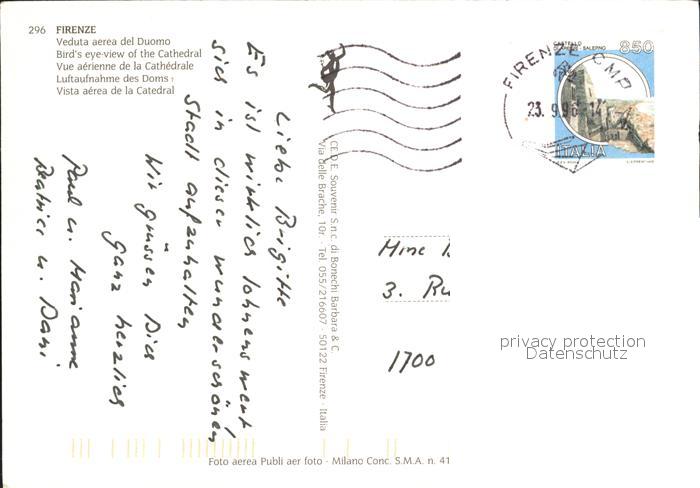 296 FIRENZE
Veduta aerea del Duomo
Bird's eye-view of the Cathedral
Vue aérienne de la Cathédrale
Luftaufnahme des Doms
Vista aérea de la Catedral
Liebe Brigitte
Es ist wirklich lohnenswert
sich in dieser wunderschönen
Stadt aufzuhalten!
Wir grüssen Dich
ganz herzlich
Paul u. Marianne
Beatrice u. Dani
CE.D.E. Souvenir S.n.c. di Bonechi Barbara & C.
Via delle Brache, 10r. · Tel. 055/216607 · 50122 Firenze · Italia
Foto aerea Publi aer foto - Milano Conc. S.M.A. n. 41
CASTELLO
SALERNO
850
ITALIA
FIRENZE CMP
23.9.96 14
Mme
3. Ru
1700
privacy protection
Datenschutz